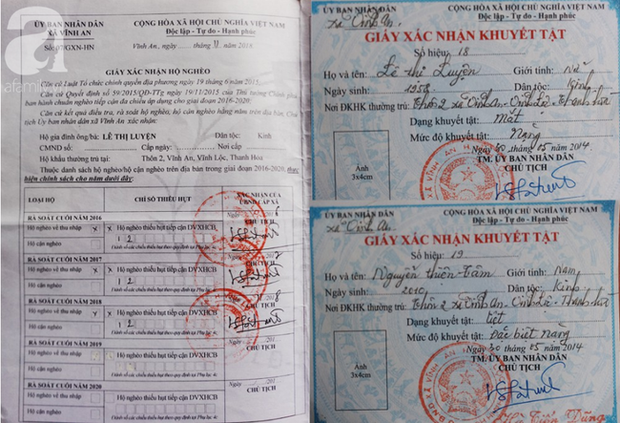 ỦY BAN NHÂN DÂN
XÃ VĨNH AN
CỘNG HÒA XÃ HỘI CHỦ NGHĨA VIỆT NAM
Độc lập - Tự do - Hạnh phúc
/GXN-HN
Vĩnh An, ngày tháng 11 năm 2016
GIẤY XÁC NHẬN HỘ NGHÈO
Căn cứ Luật Tổ chức chính quyền địa phương ngày 19 tháng 6 năm 2015;
Căn cứ Quyết định số 59/2015/QĐ-TTg ngày 19/11/2015 của Thủ tướng Chính phủ
ban hành chuẩn nghèo tiếp cận đa chiều áp dụng cho giai đoạn 2016-2020;
Căn cứ kết quả điều tra, rà soát hộ nghèo, hộ cận nghèo hằng năm trên địa bàn, Chủ
tịch Ủy ban nhân dân xã Vĩnh An xác nhận:
Hộ gia đình ông/bà: LÊ THỊ LUYỆN Dân tộc: Kinh
CMND số: Cấp ngày: Nơi cấp
Hộ khẩu thường trú tại: Thôn 2, Vĩnh An, Vĩnh Lộc, Thanh Hoá
Thuộc danh sách hộ nghèo/hộ cận nghèo trên địa bàn trong giai đoạn 2016-2020, thực
hiện chính sách cho năm dưới đây:
LOẠI HỘ CHỈ SỐ THIẾU HỤT XÁC NHẬN CỦA
UBND CẤP XÃ
RÀ SOÁT CUỐI NĂM 2016
Hộ nghèo về thu nhập x x Hộ nghèo thiếu hụt tiếp cận DVXHCB
Hộ cận nghèo 1 2
RÀ SOÁT CUỐI NĂM 2017
Hộ nghèo về thu nhập x x Hộ nghèo thiếu hụt tiếp cận DVXHCB
Hộ cận nghèo 1 2
RÀ SOÁT CUỐI NĂM 2018
Hộ nghèo về thu nhập x x Hộ nghèo thiếu hụt tiếp cận DVXHCB
Hộ cận nghèo 1 2
RÀ SOÁT CUỐI NĂM 2019
Hộ nghèo về thu nhập Hộ nghèo thiếu hụt tiếp cận DVXHCB
CHỦ TỊCH
Hộ cận nghèo
RÀ SOÁT CUỐI NĂM 2020
Hộ nghèo về thu nhập Hộ nghèo thiếu hụt tiếp cận DVXHCB
CHỦ TỊCH
Hộ cận nghèo
ỦY BAN NHÂN DÂN
xã Vĩnh An
CỘNG HÒA XÃ HỘI CHỦ NGHĨA VIỆT NAM
Độc lập - Tự do - Hạnh phúc
GIẤY XÁC NHẬN KHUYẾT TẬT
Số hiệu: 18
Họ và tên: Lê Thị Luyện Giới tính: Nữ
Ngày sinh: 1958 Dân tộc: Kinh
Nơi ĐKHK thường trú: Thôn 2 xã Vĩnh An
Dạng khuyết tật: Mắt
Mức độ khuyết tật: Nặng
Ngày 30 tháng 05 năm 2014
TM. ỦY BAN NHÂN DÂN
CHỦ TỊCH
Ảnh
3x4cm
ỦY BAN NHÂN DÂN
xã Vĩnh An
CỘNG HÒA XÃ HỘI CHỦ NGHĨA VIỆT NAM
Độc lập - Tự do - Hạnh phúc
GIẤY XÁC NHẬN KHUYẾT TẬT
Số hiệu: 19
Họ và tên: Nguyễn Thiên Tâm Giới tính: Nam
Ngày sinh: 2010 Dân tộc: Kinh
Nơi ĐKHK thường trú: Thôn 2 xã Vĩnh An
Dạng khuyết tật: liệt
Mức độ khuyết tật: Đặc biệt nặng
Ngày 30 tháng 05 năm 2014
TM. ỦY BAN NHÂN DÂN
CHỦ TỊCH
Ảnh
3x4cm